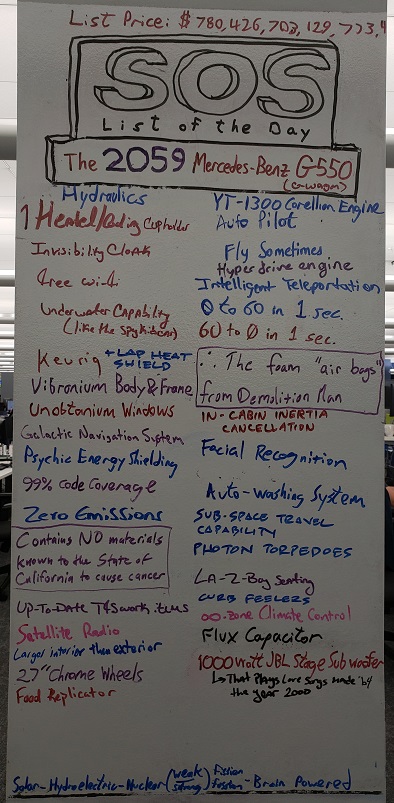 List Price: $ 780,426,703,129,773,4
SOS
List of the Day
The 2059 Mercedes-Benz G-550
(G-wagon)
Hydraulics
1 Heated/Cooling Cupholder
Invisibility Cloak
Free wi-fi
Underwater Capability
(like the Spy Kids car)
Keurig + LAP HEAT
SHIELD
Vibranium Body & Frame
Unobtanium Windows
Galactic Navigation System
Psychic Energy Shielding
99% Code Coverage
Zero Emissions
Contains NO materials
known to the State of
California to cause cancer
Up-To-Date T4S work items
Satellite Radio
Larger interior than exterior
27" Chrome Wheels
Food Replicator
YT-1300 Corellion Engine
Auto Pilot
Fly Sometimes
Hyperdrive engine
Intelligent Teleportation
0 to 60 in 1 sec.
60 to 0 in 1 sec.
∴ The foam "air bags"
from Demolition Man
IN-CABIN INERTIA
CANCELLATION
Facial Recognition
Auto-washing System
SUB-SPACE TRAVEL
CAPABILITY
PHOTON TORPEDOES
LA-Z-Boy Seating
CURB FEELERS
∞-Zone Climate Control
Flux Capacitor
1000 watt JBL Stage Subwoofer
↳ That Plays Love Songs Made by
the year 2000
Solar-Hydroelectric-Nuclear (weak/strong) Fission/Fusion-Brain Powered